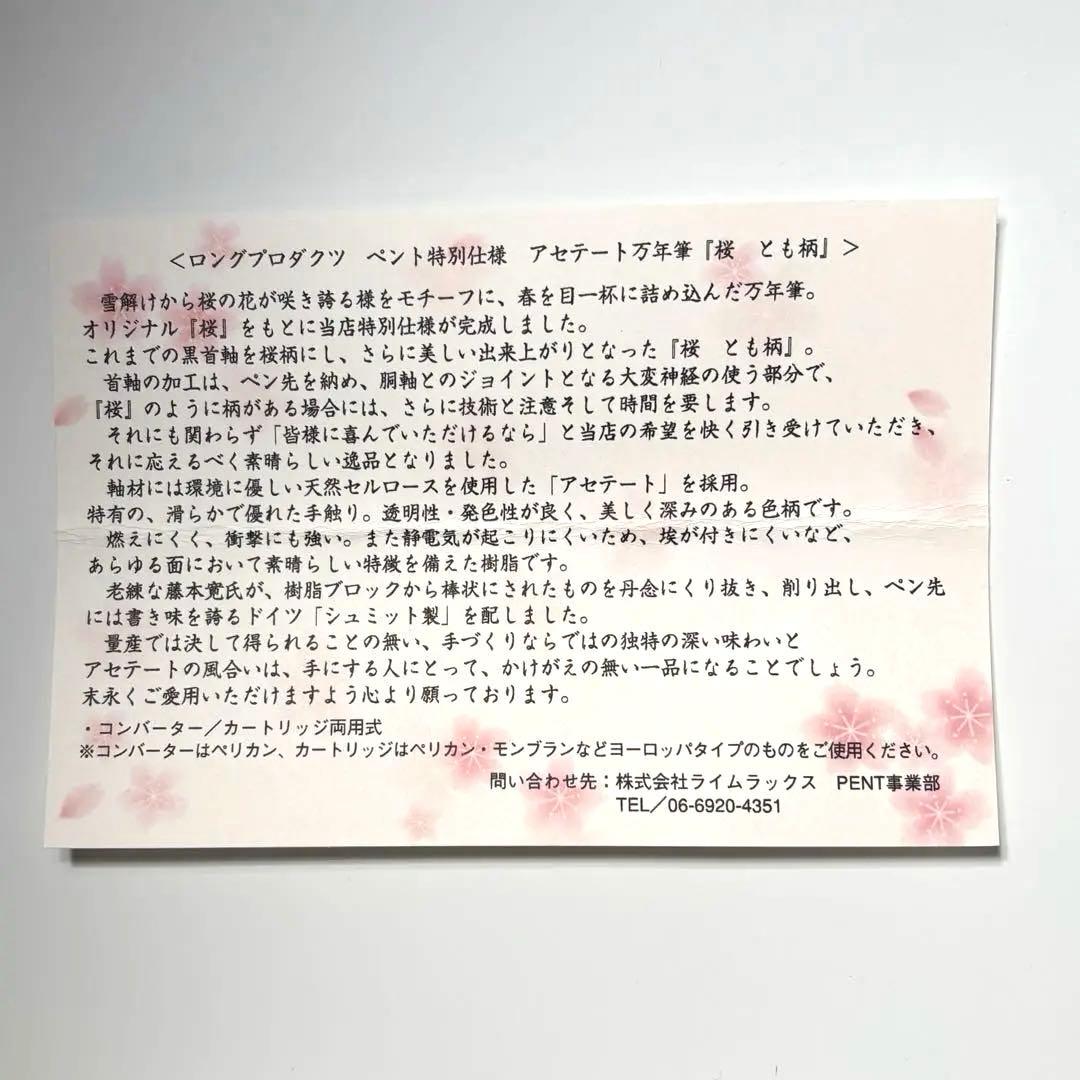 <ロングプロダクツ　ペント特別仕様　アセテート万年筆『桜　とも柄』>
雪解けから桜の花が咲き誇る様をモチーフに、春を目一杯に詰め込んだ万年筆。
オリジナル『桜』をもとに当店特別仕様が完成しました。
これまでの黒首軸を桜柄にし、さらに美しい出来上がりとなった『桜　とも柄』。
首軸の加工は、ペン先を納め、胴軸とのジョイントとなる大変神経の使う部分で、
『桜』のように柄がある場合には、さらに技術と注意そして時間を要します。
それにも関わらず「皆様に喜んでいただけるなら」と当店の希望を快く引き受けていただき、
それに応えるべく素晴らしい逸品となりました。
軸材には環境に優しい天然セルロースを使用した「アセテート」を採用。
特有の、滑らかで優れた手触り。透明性・発色性が良く、美しく深みのある色柄です。
燃えにくく、衝撃にも強い。また静電気が起こりにくいため、埃が付きにくいなど、
あらゆる面において素晴らしい特徴を備えた樹脂です。
老練な藤本寛氏が、樹脂ブロックから棒状にされたものを丹念にくり抜き、削り出し、ペン先
には書き味を誇るドイツ「シュミット製」を配しました。
量産では決して得られることの無い、手づくりならではの独特の深い味わいと
アセテートの風合いは、手にする人にとって、かけがえの無い一品になることでしょう。
末永くご愛用いただけますよう心より願っております。
・コンバーター／カートリッジ両用式
※コンバーターはペリカン、カートリッジはペリカン・モンブランなどヨーロッパタイプのものをご使用ください。
問い合わせ先：株式会社ライムラックス　PENT事業部
TEL／06-6920-4351